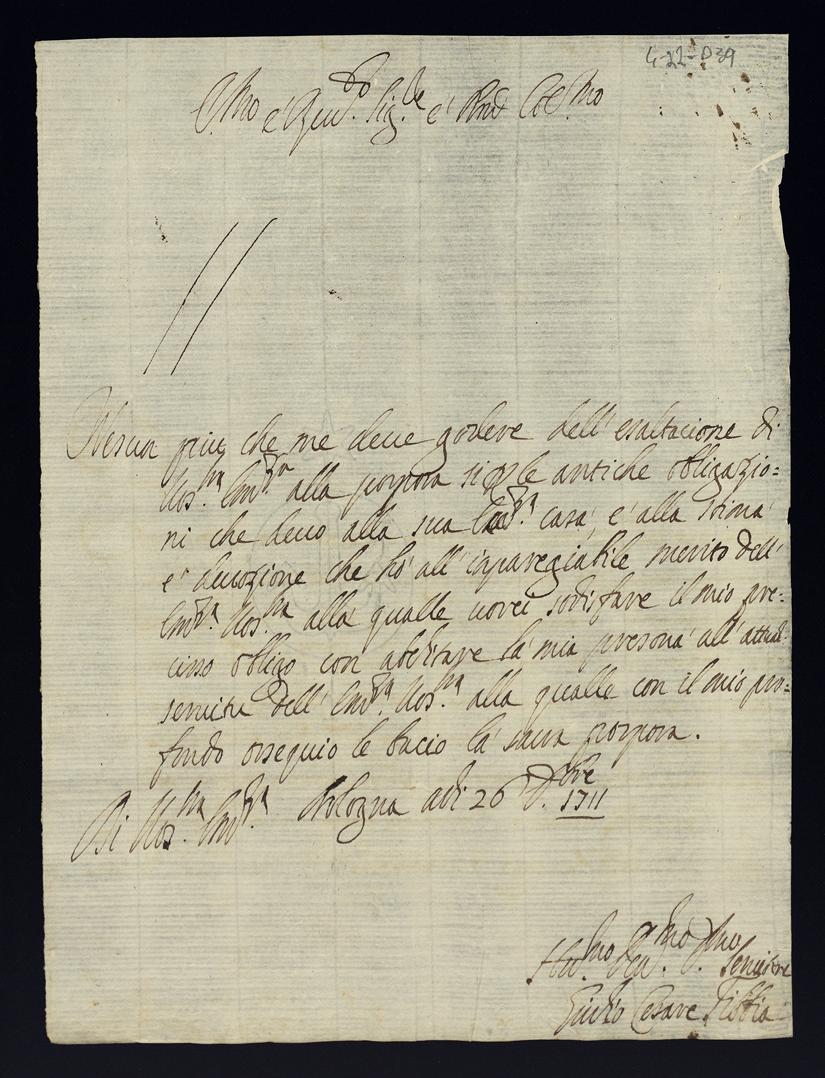 4-22-D39
E.mo e' Rev.do Sig.re e' Pnd Col.mo
Nesun piu che me deve godere dell' esaltacione di
Vos.ra Em.za alla porpora si per le antiche obligazio=
ni che devo alla sua casa, e' alla stima
e' devozione che ho' all' inparegiabile merito dell'
Em.za Vos.ra alla qualle vorei sodisfare il mio pre=
ciso obligo con abelitare la' mia presona' all' attual
servitu dell' Em.za Vos.ra alla qualle con il mio pro=
fondo ossequio le bacio la' sacra porpora.
Di Vos.ra Em.za Bologna adi 26 1711
Hu.mo De.mo Servitore
Giulio Cesare